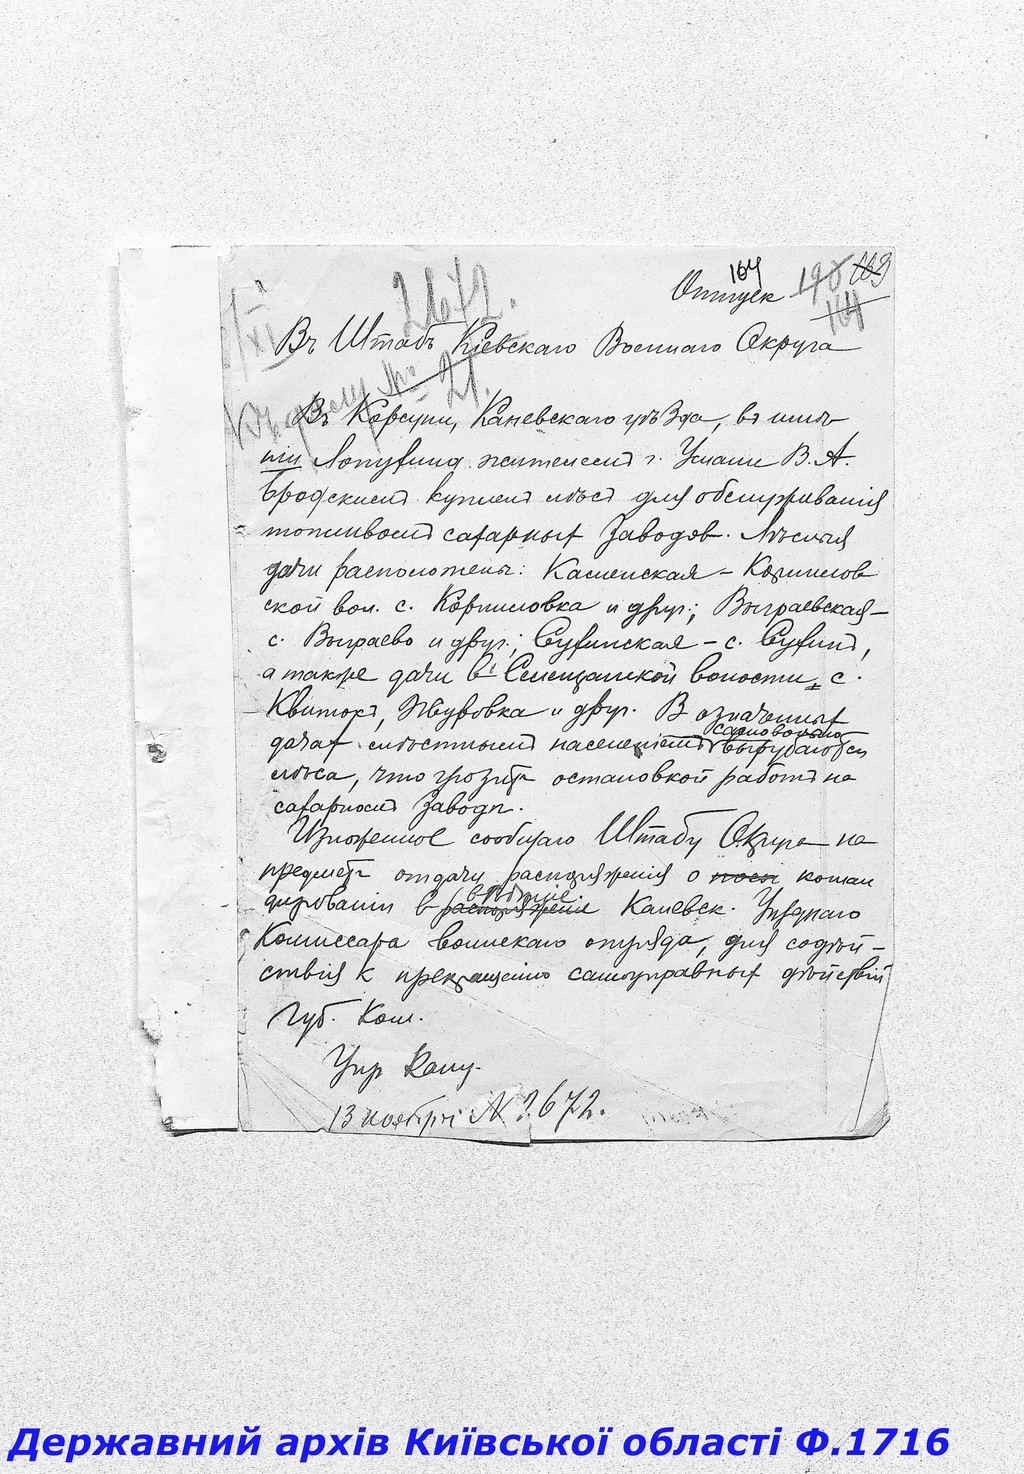 164
Отпуск 198 163
164
2672.
Въ Штабъ Кіевскаго Военнаго Округа
№ 21.
Въ Корсуни, Каневскаго уѣзда, въ имѣ-
ніи Лопухина жителемъ г. Умани В. А.
Бродскимъ купленъ лѣсъ для обслуживанія
топливомъ сахарныхъ заводовъ. Лѣсныя
дачи расположены: Каменская – Корнилов
ской вол. с. Корниловка и друг.; Выграевская –
с. Выграево и друг.; Сухинская – с. Сухины,
а также дачи въ Селищанской волости, с.
Квитки, Журовка и друг. В означенныхъ
самовольно
дачах мѣстнымъ населеніемъ вырубаются
лѣса, что грозитъ остановкой работъ на
сахарномъ заводѣ.
Изложенное сообщаю Штабу Округа на
предметъ отдачи распоряженія о коман
дированіи в распоряженіе Каневск. Уѣзднаго
Комиссара воинскаго отряда, для содѣй-
ствія к прекращенію самоуправныхъ дѣйствій
Губ. Ком.
Упр Канц.
13 ноября № 2672.
Державний архів Київської області Ф.1716